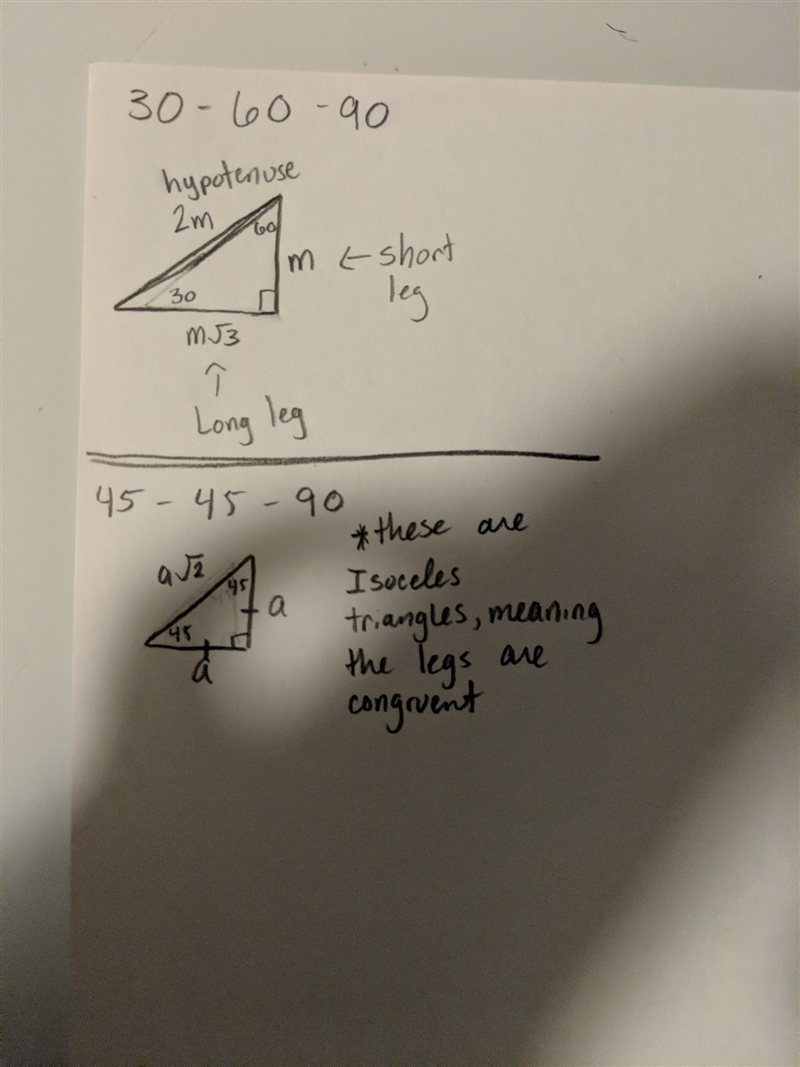 30 - 60 - 90
hypotenuse
2m
60
m ← short
leg
30
m√3
↑
Long leg
45 - 45 - 90
*these are
a√2
45
Isoceles
a
triangles, meaning
45
the legs are
a
congruent